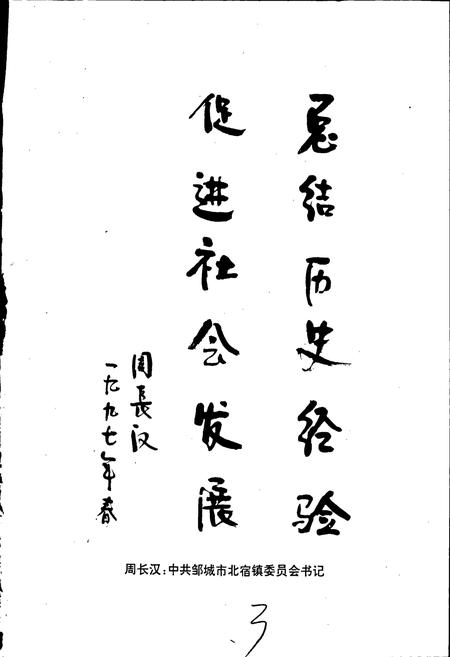 总结历史经验
促进社会发展
周長汉
一九九七年春
周长汉：中共邹城市北宿镇委员会书记
3